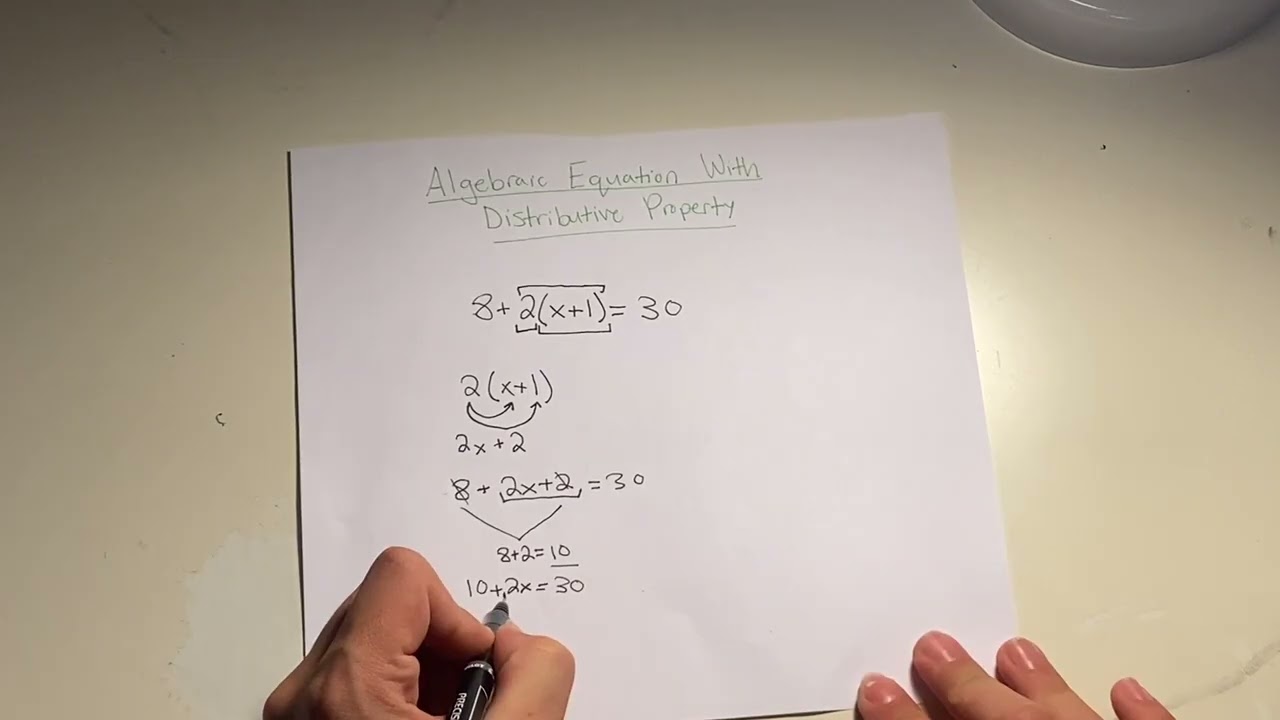 Algebraic Equation With
Distributive Property
8+2(x+1)=30
2(x+1)
2x+2
8+2x+2=30
8+2=10
10+2x=30